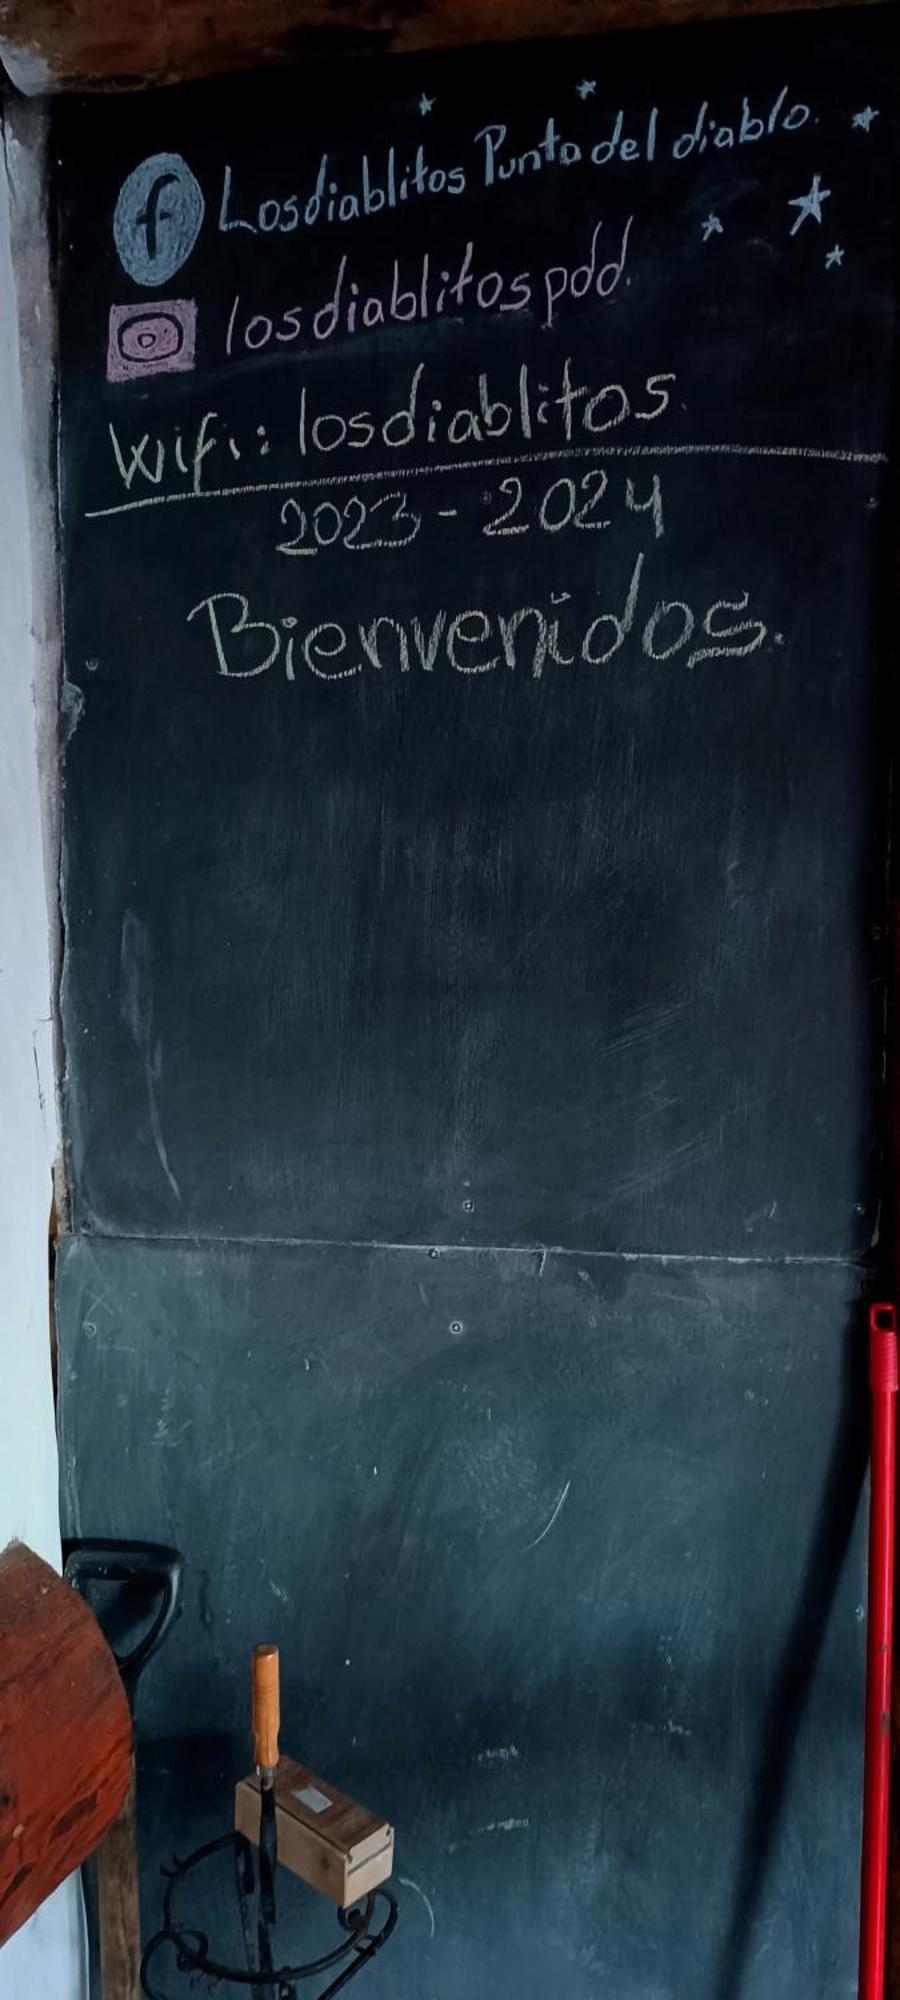 f Losdiablitos Punta del diablo.
losdiablitospdd.
Wifi: losdiablitos.
2023-2024
Bienvenidos.